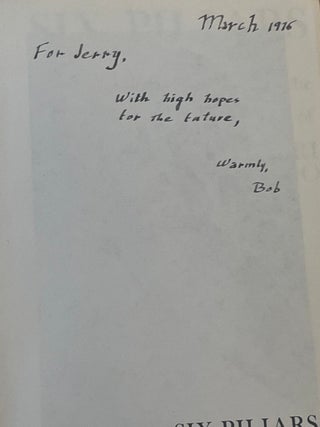 March 1976
For Jerry,
With high hopes
for the future,
Warmly,
Bob
SIX PILLARS